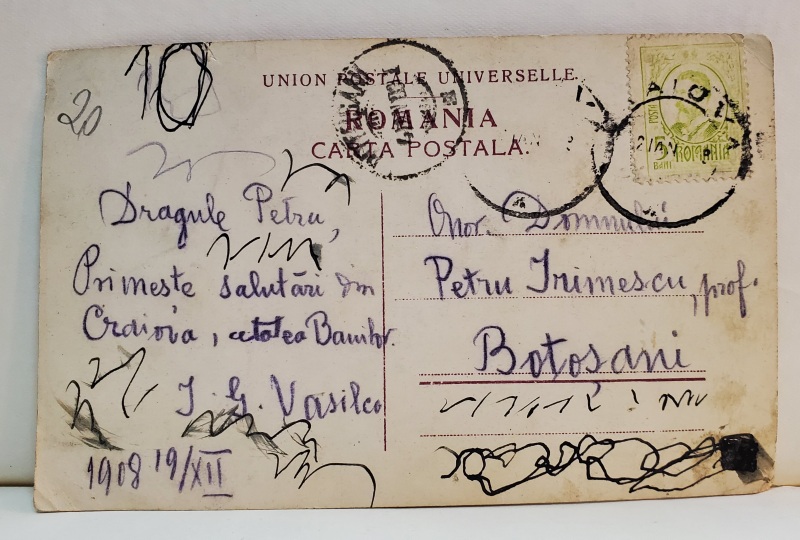 10
20
UNION POSTALE UNIVERSELLE
ROMANIA
CARTA POSTALA.
POSTA
5 ROMANIA
BANI
Dragule Petru,
Primeste salutări din
Craiova, cetatea Banilor.
I. G. Vasilco
1908 19/XII
Onor. Domnului
Petru Irimescu, prof.
Botoșani